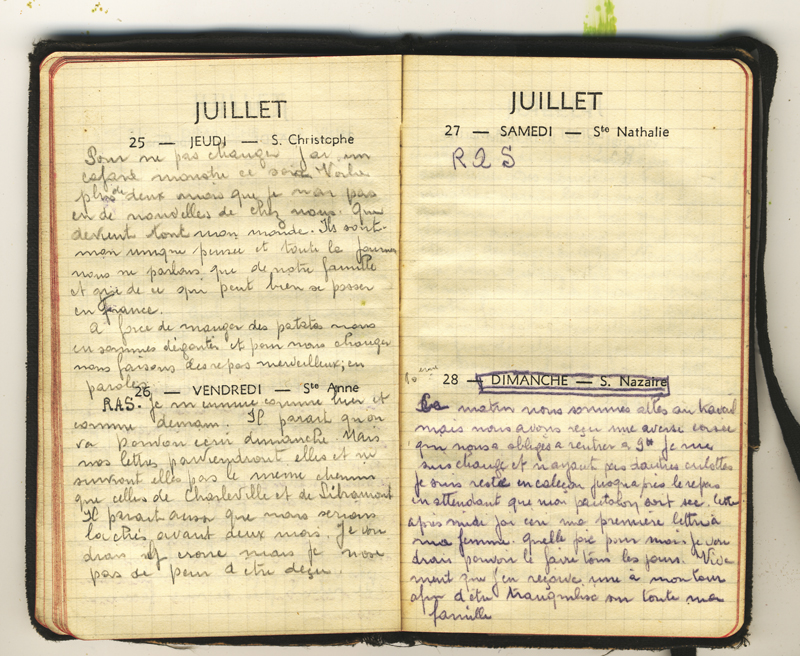 JUILLET
25 — JEUDI — S. Christophe
Pour ne pas changer j'ai un
cafard monstre ce soir. Voila
plus de deux mois que je n'ai pas
eu de nouvelles de chez nous. Que
devient tout mon monde. Ils sont
mon unique pensée et toute la journée
nous ne parlons que de notre famille
et que de ce qui peut bien se passer
en France.
A force de manger des patates nous
en sommes dégoutés et pour nous changer
nous faisons des repas merveilleux; en
paroles.
26 — VENDREDI — Ste Anne
RAS. Je m'ennuie comme hier et
comme demain. Il parait qu'on
va pouvoir ecrir dimanche. Mais
nos lettres parviendront elles et ne
suivront elles pas le meme chemin
que celles de Charleville et de Libramont
Il parait aussi que nous serions
avant deux mois. Je vou
drais y croire mais je n'ose
pas de peur d'etre deçu.
JUILLET
27 — SAMEDI — Ste Nathalie
RAS
10 eme
28 — DIMANCHE — S. Nazaire
Ce matin nous sommes allés au travail
mais nous avons reçu une averse
qui nous a obligés a rentrer a 9h Je me
suis changé et n'ayant pas d'autres culottes
je suis resté en caleçon jusqu'apres le repas
en attendant que mon pantalon soit sec. Cette
apres midi j'ai ecri ma premiere lettre à
ma femme. Quelle joie pour moi je vou
drais pouvoir le faire tous les jours. Vive
ment que j'en reçoive une à mon tour
afin d'être tranquilisé sur toute ma
famille